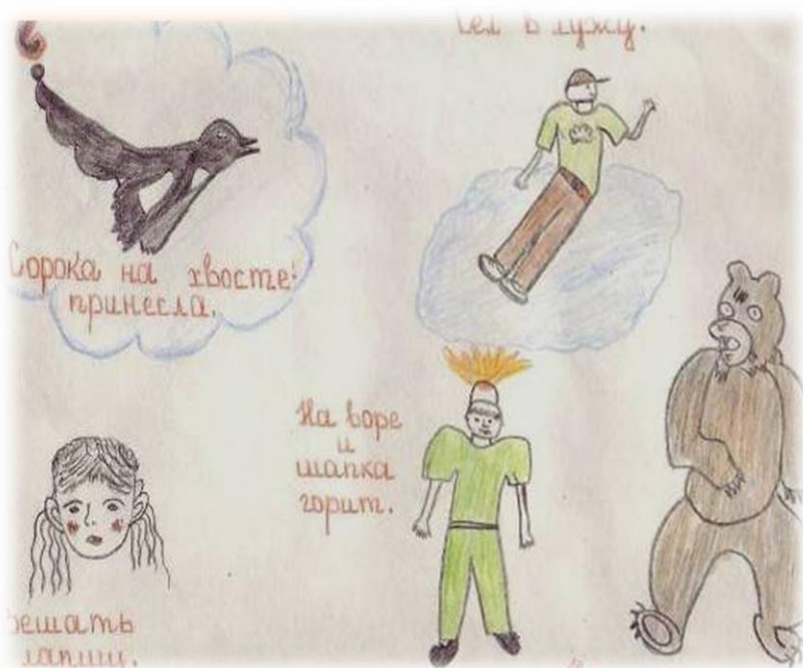 Сел в лужу.
Сорока на хвосте
принесла.
На воре
и
шапка
горит.
вешать
лапши.